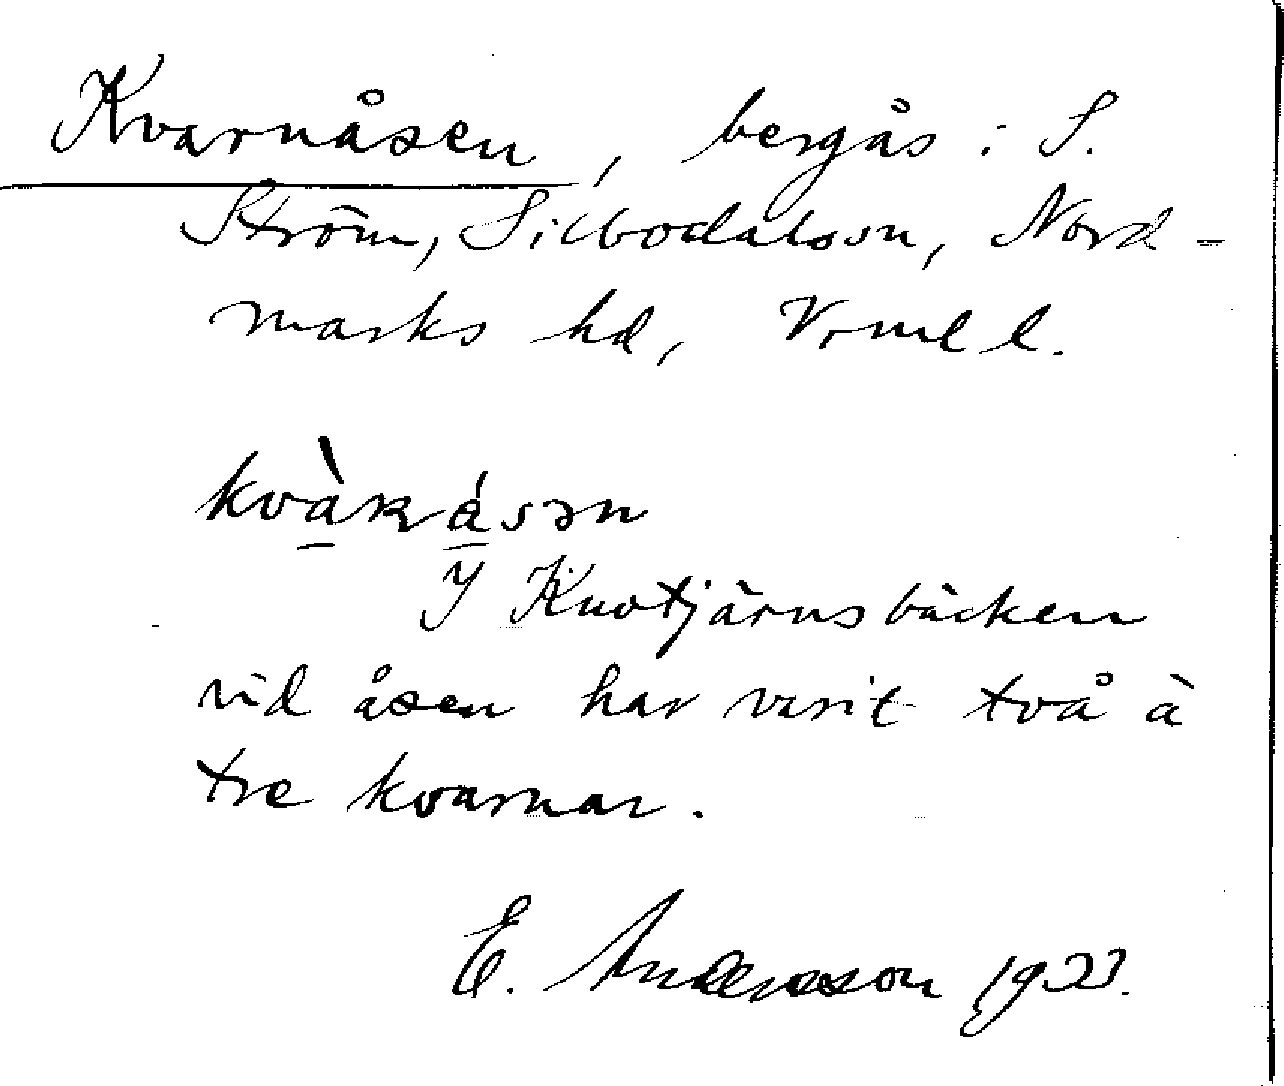 Kvarnåsen, bergås i S.
Ström, Silbodalssn, Nord-
marks hd, Vrml l.
I Knotjärnsbäcken
vid åsen har varit två à
tre kvarnar.
E. Andersson 1933.